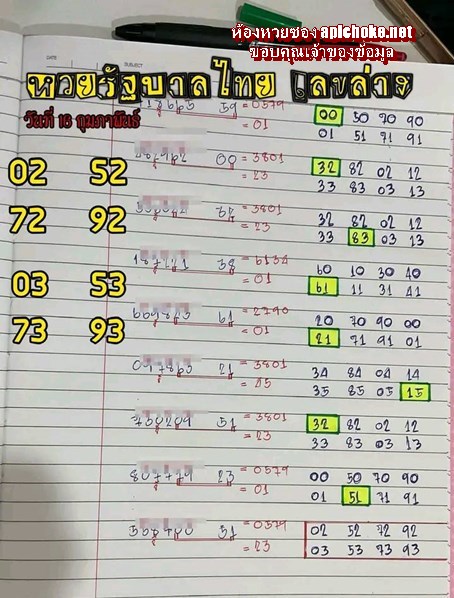 ห้องหวยซอง aplchoke.net
ขอบคุณเจ้าของข้อมูล
DATE SUBJECT
หวยรัฐบาลไทย เลขล่าง
59 = 0579 00 50 70 90
วันที่ 16 กุมภาพันธ์ = 01 01 51 71 91
00 = 3801 32 82 02 12
02 52 = 23 33 83 03 13
= 3801 32 82 02 12
72 92 = 23 33 83 03 13
38 = 6134 60 10 30 40
03 53 = 01 61 11 31 41
61 = 2790 20 70 90 00
73 93 = 01 21 71 91 01
21 = 3801 34 84 04 14
= 45 35 85 05 15
51 = 3801 32 82 02 12
= 23 33 83 03 13
23 = 0579 00 50 70 90
= 01 01 51 71 91
= 0579 02 52 72 92
= 23 03 53 73 93